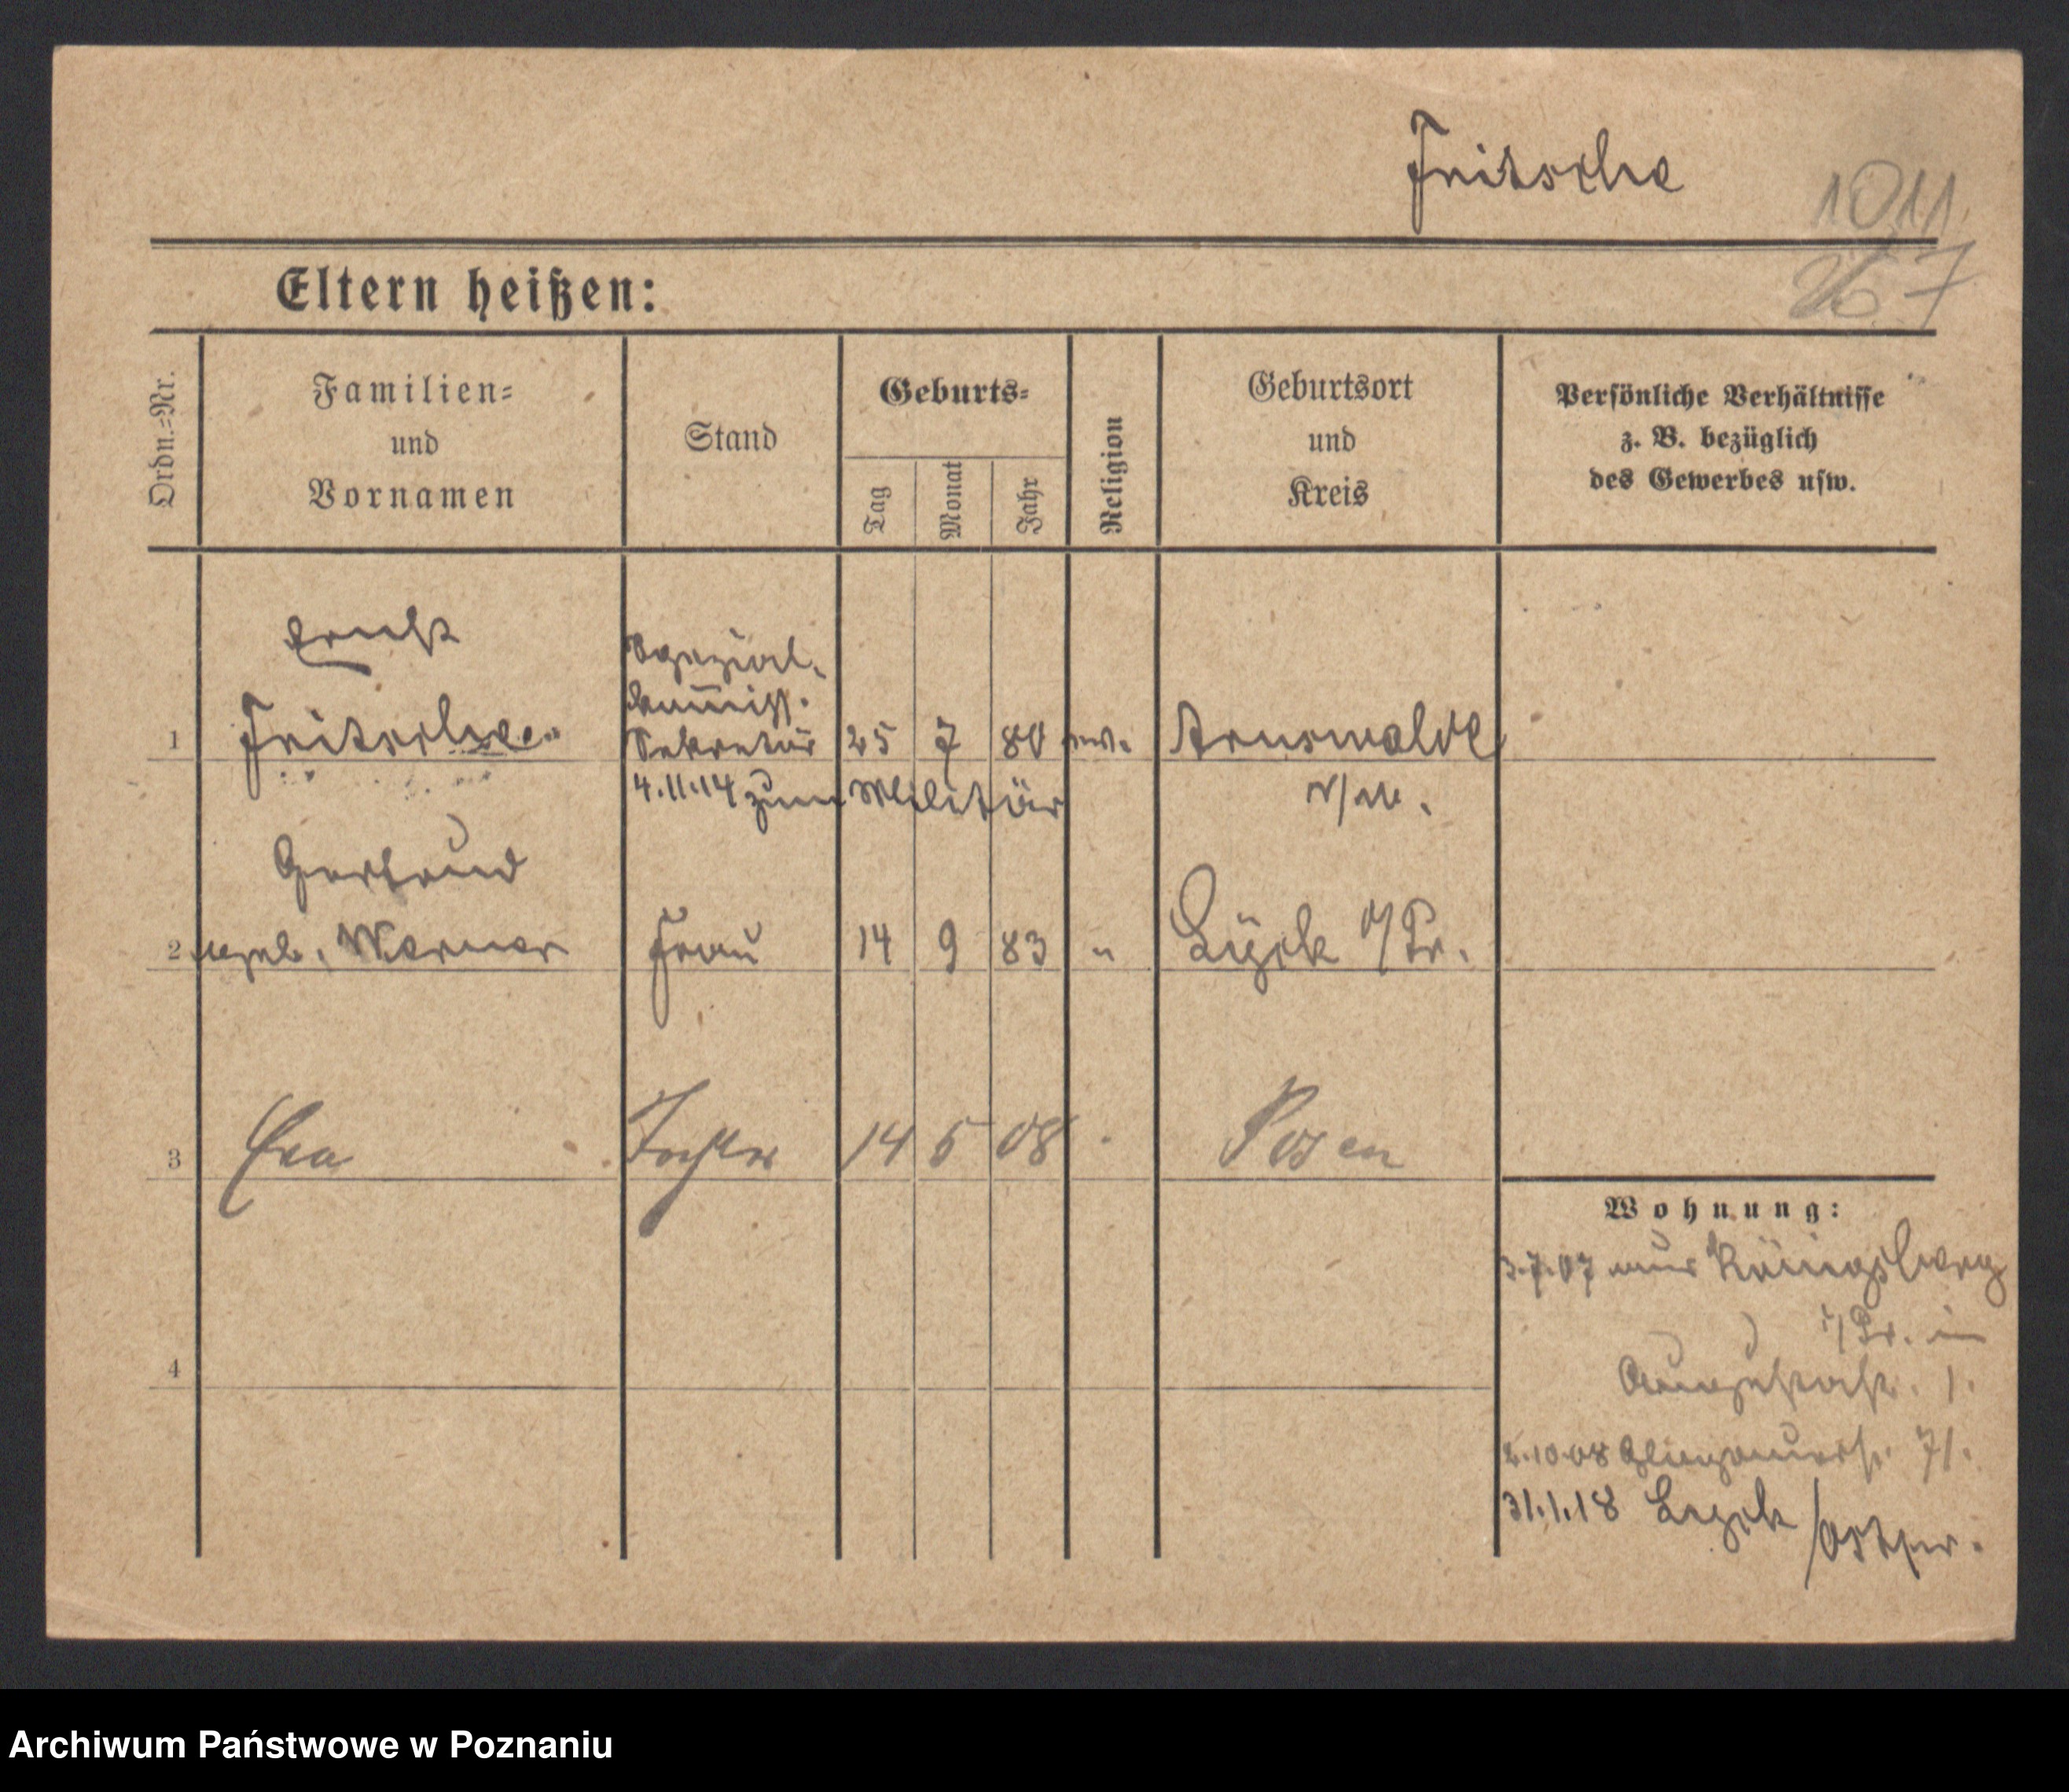 Fritsche
1011
Eltern heißen:
Ordn.=Nr.
Familien=
und
Vornamen
Stand
Geburts=
Tag
Monat
Jahr
Religion
Geburtsort
und
Kreis
Persönliche Verhältnisse
z. B. bezüglich
des Gewerbes usw.
Ernst
Spezial.
kom̄iss.
1 Fritsche Sekretär 25 7 80 ev. Arnswalde
4.11.14 zum Militär
N/M.
Gertrud
2 geb. Werner Frau 14 9 83 " Lyck O/Pr.
3 Eva Tochter 14 5 08 Posen
Wohnung:
3.7.07 aus Königsberg
i/Pr. in
Augustastr. 1.
2.10.08 Glogauerstr. 71.
4
31.1.18 Lyck /Ostpr.
Archiwum Państwowe w Poznaniu